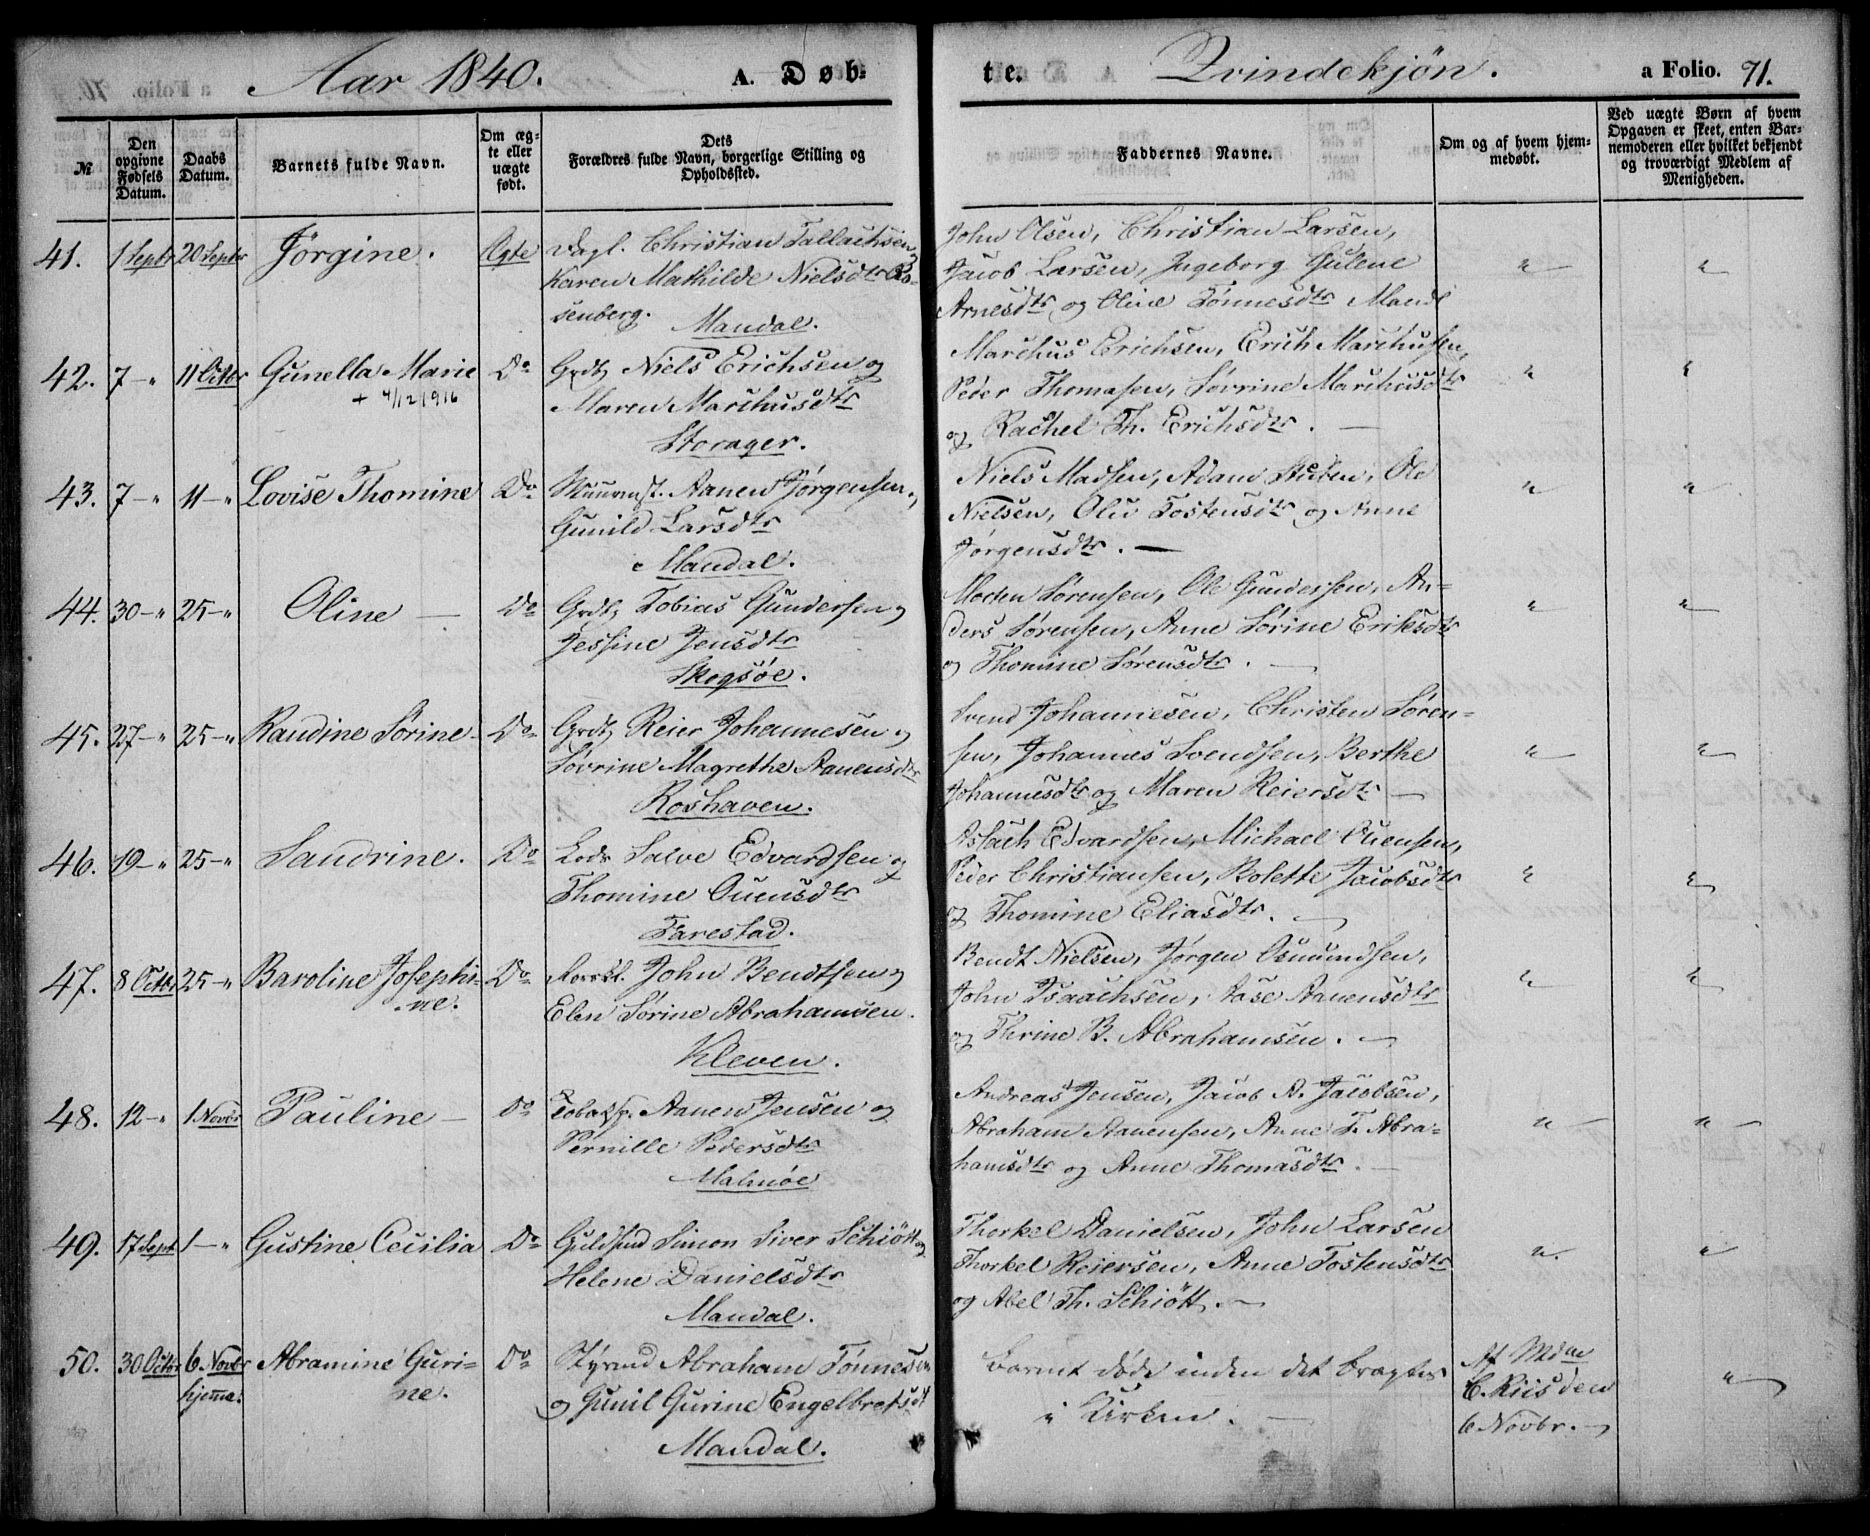 Aar 1840. A. Døb-
te. Qvindekjøn. a Folio. 71.
№
Den opgivne Fødsels Datum.
Daabs Datum.
Barnets fulde Navn.
Om ægte eller uægte født.
Dets
Forældres fulde Navn, borgerlige Stilling og
Opholdssted.
Faddernes Navne.
Om og af hvem hjem-
medøbt.
Ved uægte Børn af hvem
Opgaven er skeet, enten Bar-
nemoderen eller hvilket bekjendt
og troværdigt Medlem af
Menigheden.
41. 1 Septr 20 Septr Jørgine. Ægte Dagl. Christian Tallachsen
Karen Mathilde Nielsdtr Ro-
senberg. Mandal.
John Olsen, Christian Larsen,
Jacob Larsen, Ingeborg Gulene
Arnesdtr og Oline Tønnesdtr Mandl
42. 7 - " 11 Octbr Gunella Marie Do Grdb. Niels Erichsen og
+ 4/12 1916
Maren Marchusdtr
Storager.
Marchus Erichsen, Erich Marchusen,
Peder Thomasen, Sovrine Marchusdtr
og Rachel Th. Erichsdtr. —
43. 7 - " 11 - " Lovise Thomine Do Muurmst. Aanen Jørgensen og
Gunild Larsdtr
Mandal.
Niels Madsen, Adam Stuben, Ole
Nielsen, Oliv Tostensdtr og Anne
Jørgensdtr. —
44. 30 - " 25 - " Oline — Do Grdb. Tobias Gundersen og
Jessine Jensdtr
Skogsøe.
Morten Sørensen, Ole Gundersen, An-
ders Sørensen, Anne Sørine Eriksdtr
og Thomine Sørensdtr. —
45. 27 - " 25 - " Randine Sørine Do Grdb. Reier Johannesen og
Sovrine Magrethe Aanensdtr
Roshaven.
Svend Johannesen, Christen Søren-
sen, Johannes Svendsen, Berthe
Johannesdtr og Maren Reiersdtr —
46. 19 - " 25 - " Sandrine. Do Lods Salve Edvardsen og
Thomine Ouensdtr
Farestad.
Aslach Edvardsen, Michael Ouensen,
Peder Christiansen, Bolette Jacobsdtr
og Thomine Eliasdtr. —
47. 8 Octbr 25 - " Baroline Josephi-
ne.
Do John Bendtsen og
Elen Sørine Abrahamsen.
Kleven.
Bendt Nielsen, Jørgen Osmundsen,
John Isaachsen, Aase Aanensdtr
og Thrine B. Abrahamsen. —
48. 12 - " 1 Novbr Pauline — Do Tobaksp. Aanen Jensen og
Pernille Pedersdtr
Malmøe
Andreas Jensen, Jacob A. Jacobsen,
Abraham Aanensen, Anne T. Abra-
hamsdtr og Anne Thomasdtr. —
49. 17 Sept 1 - " Gustine Cecilia Do Guldsmd Simon Siver Schiøtt og
Helene Danielsdtr
Mandal.
Thorkel Danielsen, John Larsen
Thorkel Reiersen, Anne Tostensdtr
og Abel Th. Schiøtt. —
50. 30 Octbr 6 Novbr
hjemme.
Abramine Guri-
ne.
Do Styrmd Abraham Tønnesen
og Gunil Gurine Engelbretsdt
Mandal.
Barnet døde inden det bragtes
i Kirken. —
Af Mdme
C. Riis den
6 Novbr. —